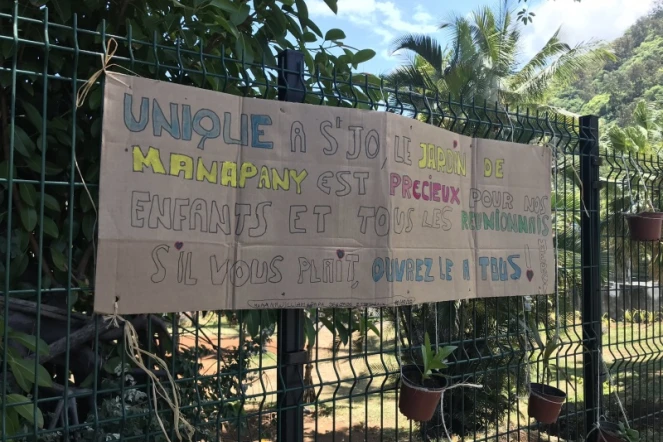 UNIQUE A S'JO, LE JARDIN DE
MANAPANY EST PRECIEUX POUR NOS
ENFANTS ET TOUS LES REUNIONNAIS
S'IL VOUS PLAIT, OUVREZ LE A TOUS!